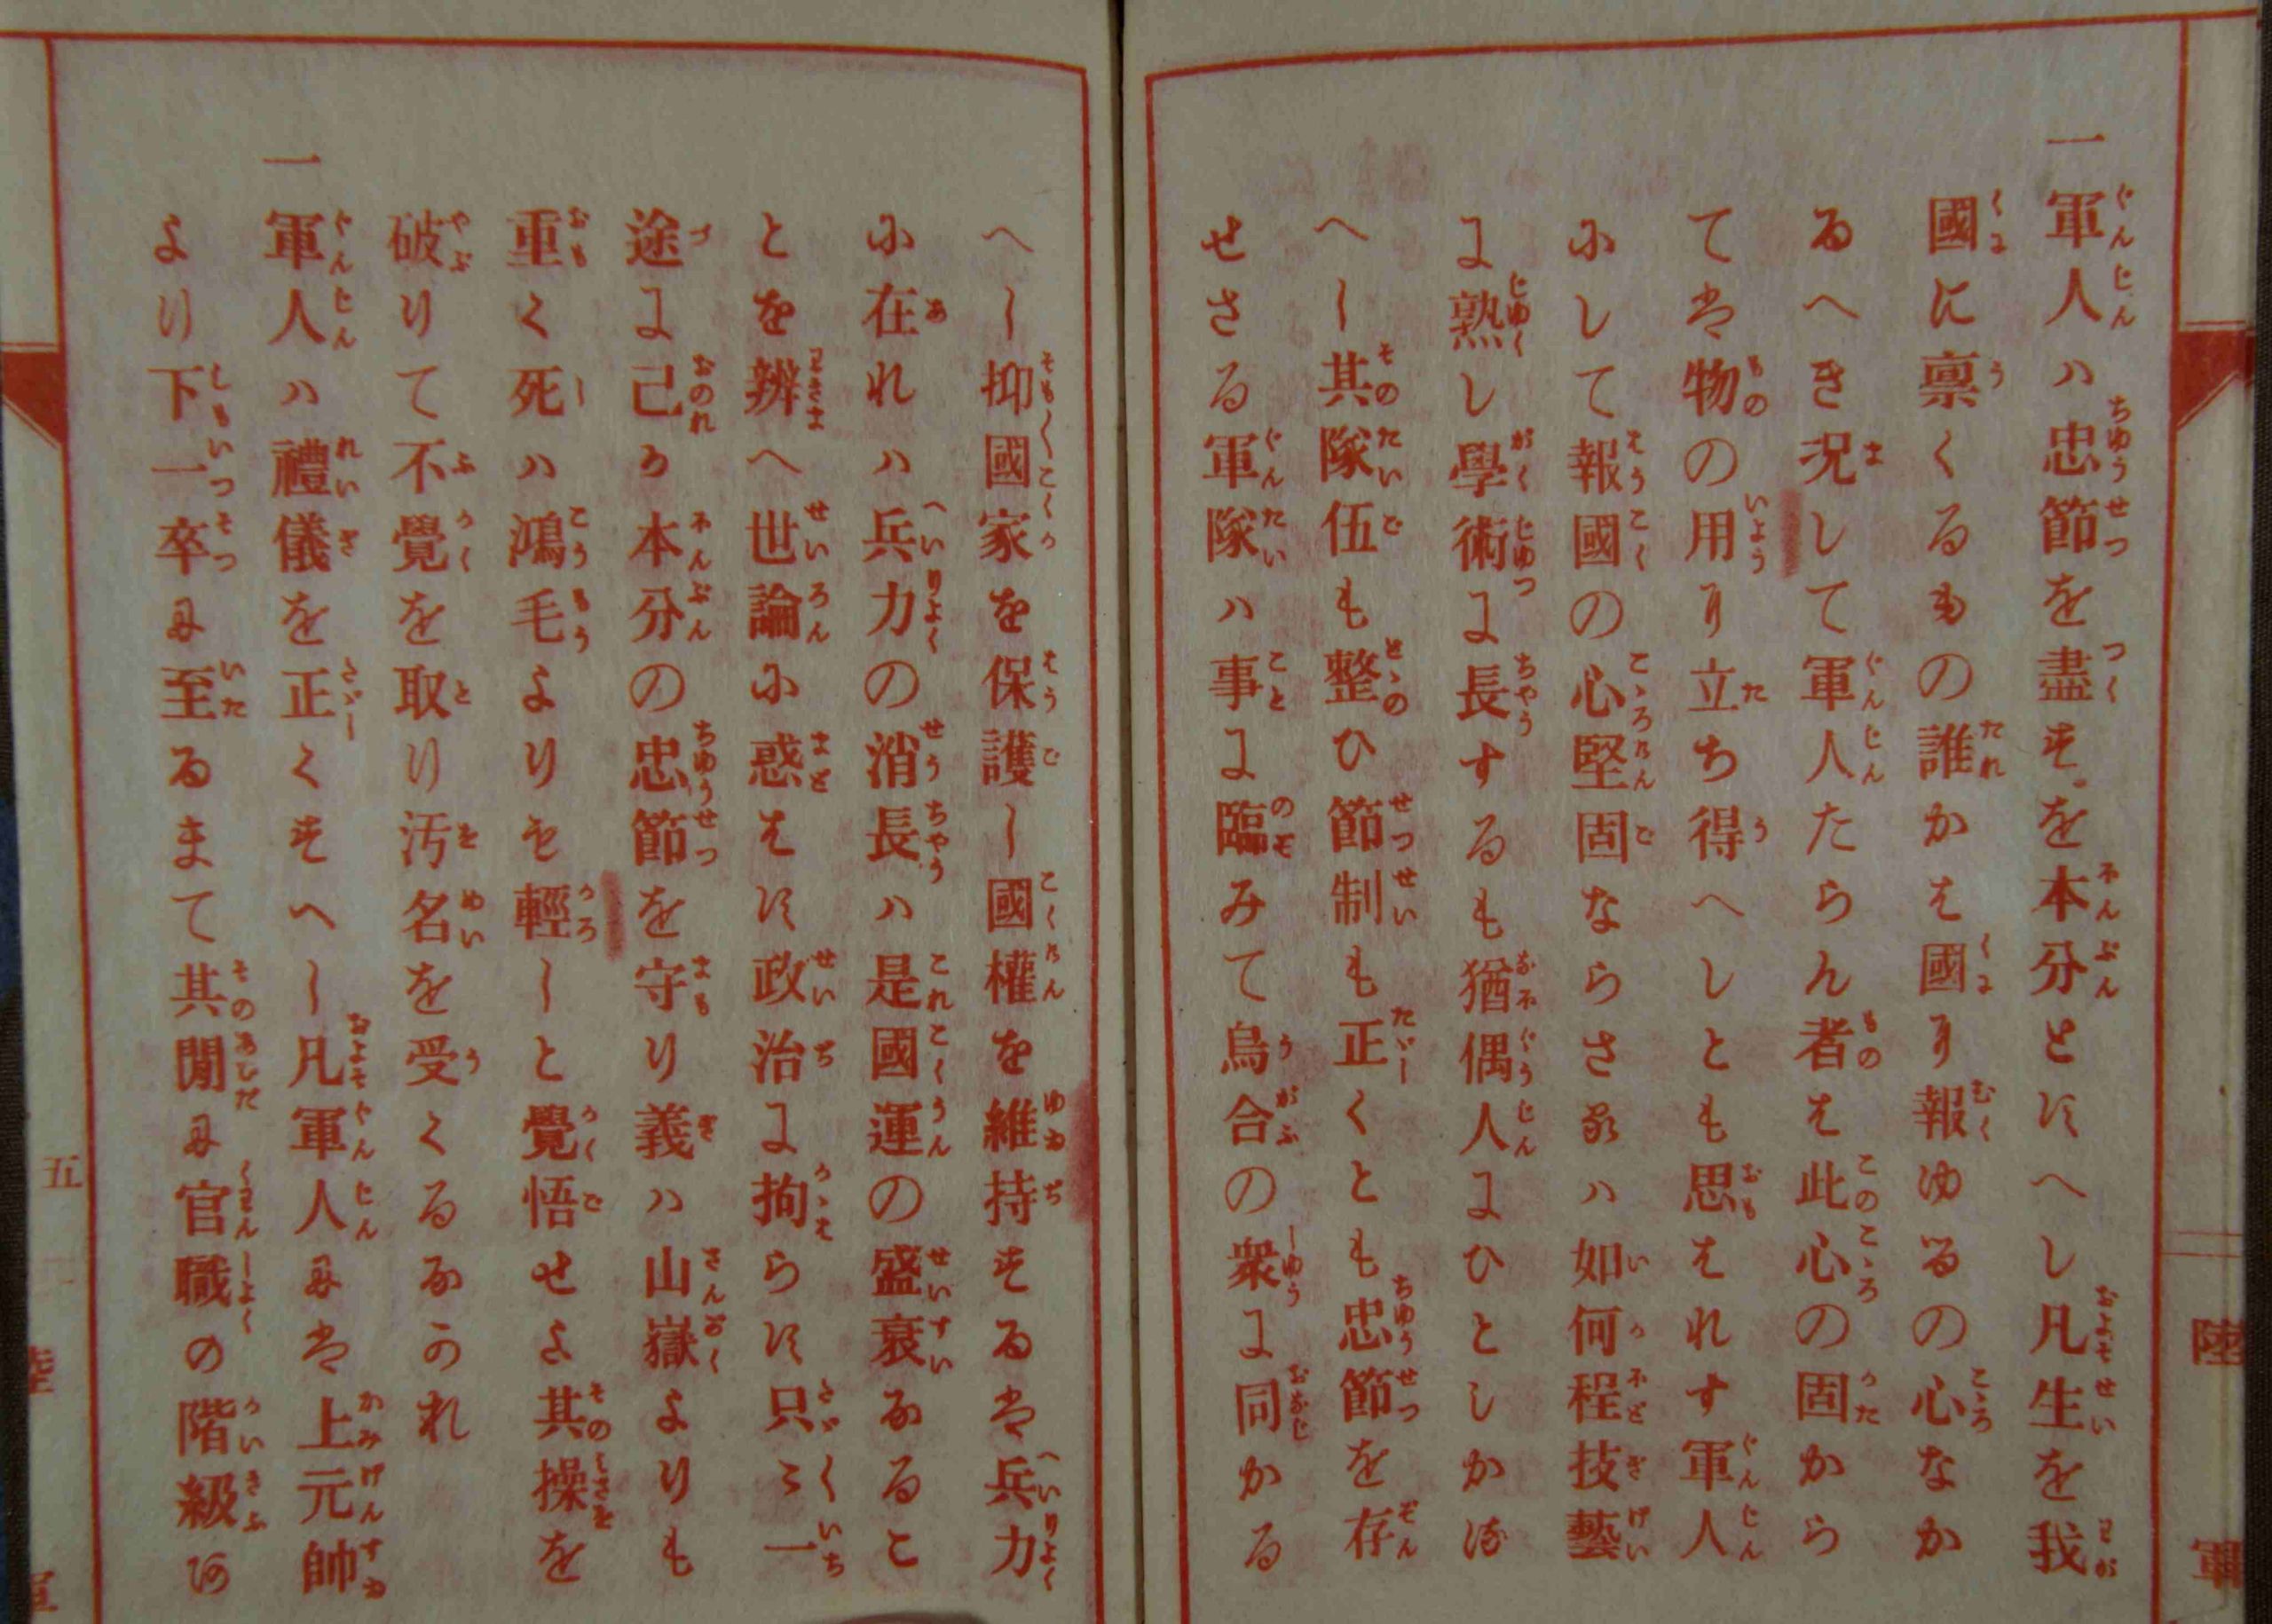 一軍人ハ忠節を盡すを本分とすへし凡生を我
國に禀くるもの誰かは國に報ゆるの心なか
るへき況して軍人たらん者は此心の固から
ては物の用に立ち得へしとも思はれす軍人
にして報國の心堅固ならさるハ如何程技藝
に熟し學術に長するも猶偶人にひとしかる
へし其隊伍も整ひ節制も正くとも忠節を存
せさる軍隊ハ事に臨みて烏合の衆に同かる
へし抑國家を保護し國權を維持するは兵力
に在れハ兵力の消長ハ是國運の盛衰なるこ
とを辨へ世論に惑はす政治に拘らす只々一
途に己か本分の忠節を守り義ハ山嶽よりも
重く死ハ鴻毛よりも輕しと覺悟せよ其操を
破りて不覺を取り汚名を受くるなかれ
一軍人ハ禮儀を正くすへし凡軍人には上元帥
より下一卒に至るまて其間に官職の階級あ
五
陸
軍